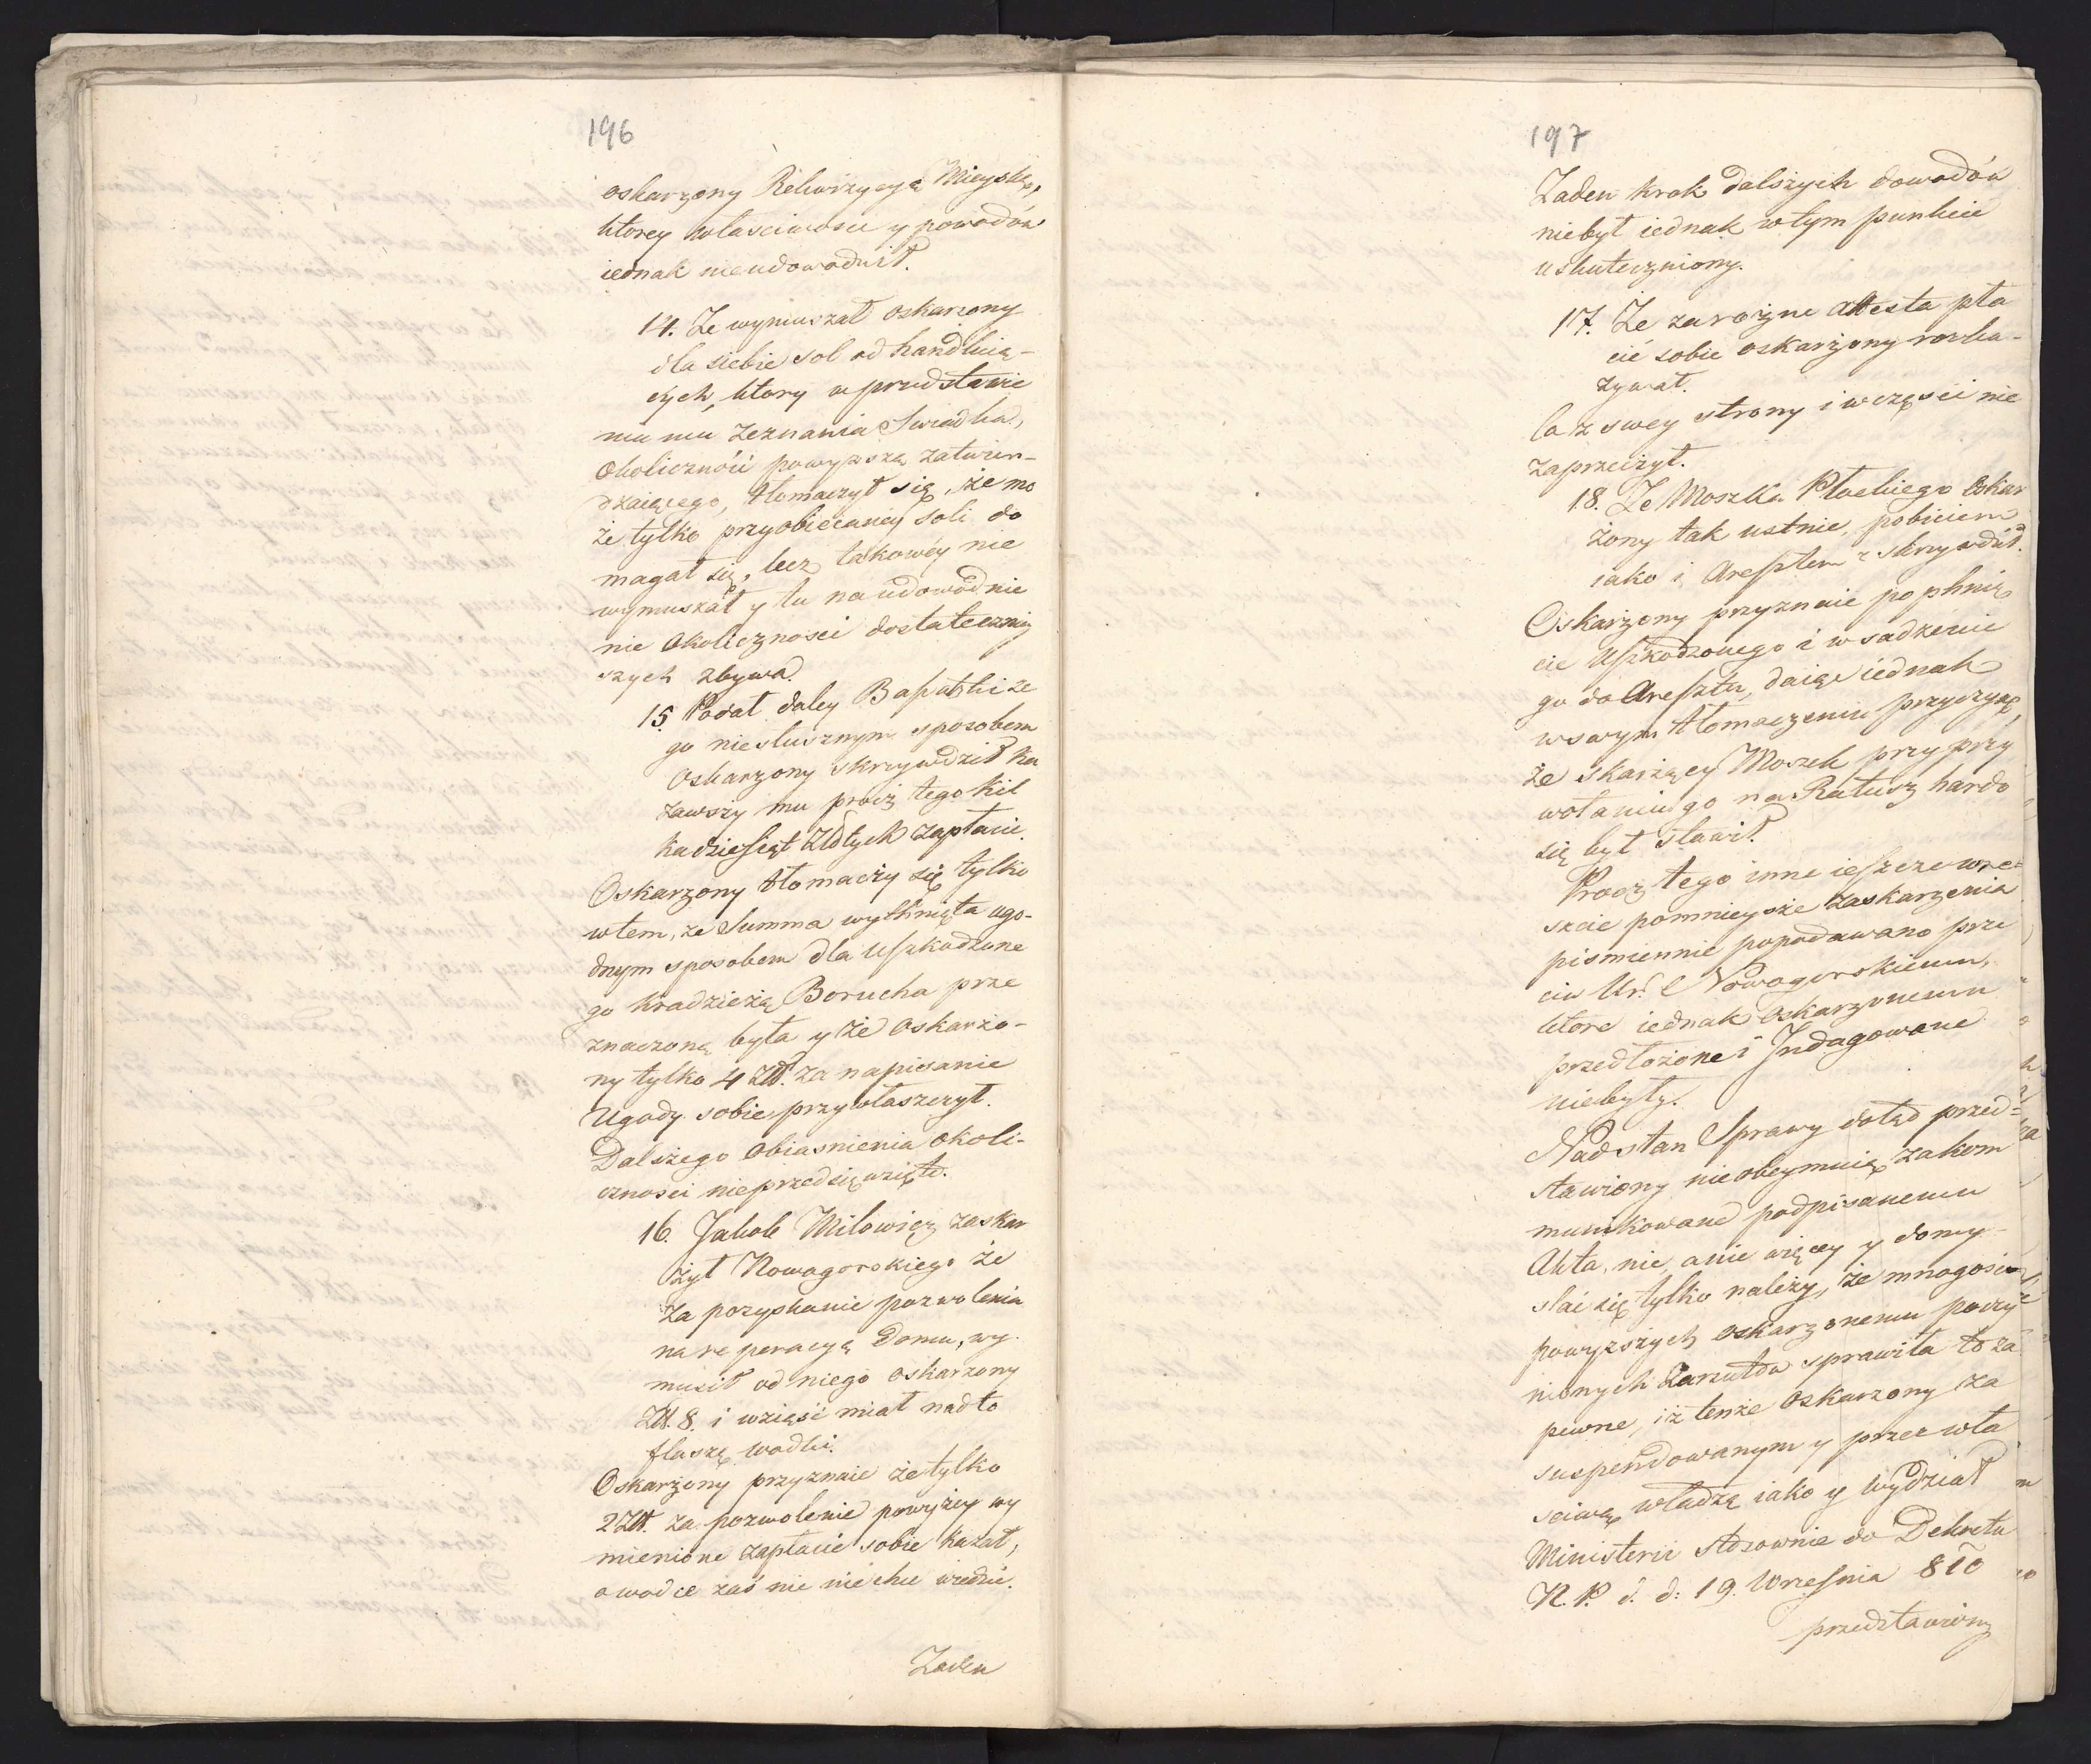 196
oskarzony Rekwizycyą Mieyską,
ktorey własciwosci y powodów
iednak nieudowodnił.
14. Ze wymuszał oskarzony
dla siebie sol od handluią-
cych, ktory w przedstawie
niu mu zeznania Swiadka,
okoliczność powyższą zatwier-
dzaiącego, tłomaczył się, że mo
że tylko przyobiecaney soli do
magał się, lecz takowéy nie
wymuszał y tu na udowodnie
nie okoliczności dostateczniey
szych zbywa.
15. Podał daley Baputski ze
go niesłusznym sposobem
Oskarzony skrzywdził ka
zawszy mu procz tego kil
kadziesiąt Złotych zapłacic.
Oskarzony tłomaczy się tylko
wtem, ze Summa wytknięta ugo-
dnym sposobem dla uszkodzone
go kradzieżą Borucha prze
znaczoną była y że oskarżo-
ny tylko 4 Złł. za napisanie
Ugody sobie przywłaszczył.
Dalszego obiasnienia okoli-
cznosci nieprzedsięwzięto.
16. Jakob Milowicz zaskar
żył Nowogorskiego że
za pozyskanie pozwolenia
na reperacyą Domu, wy
musił od niego oskarzony
Złł. 8. i wziąść miał nadto
flaszę wodki.
Oskarżony przyznaie że tylko
2 Złł. za pozwolenie powyżey wy
mienione zapłacić sobie kazał,
o wodce zaś nie nie chce wiedzić.
Zaden
197
Zaden krok dalszych dowodów
niebył iednak w tym punkcie
uskuteczniony.
17. Że za rożne Attesta pła
cić sobie oskarżony rozka-
zywał.
Co z swey strony i w części nie
zaprzeczył.
18. Ze Moszka Płockiego Oskar
żony tak ustnie, pobiciem
iako i Aresztem skrzywdził.
Oskarżony przyznaie popchnię
cie Uszkodzonego i wsadzenie
go do Aresztu, daiąc iednak
w swym tłomaczeniu przyczynę,
że skarżący Moszek przy przy
wołaniu go na Ratusz hardo
się był stawił.
Procz tego inne ieszcze wre-
szcie pomnieysze zaskarzenia
pismiennie popodawano prze
ciw Ur. Nowogorskiemu,
ktore iednak oskarzonemu
przedłożone i Indagowane
niebyły.
Nad stan Sprawy dotąd przed-
stawiony nieobeymuią zakom
munikowane podpisanemu
Akta, nic a nic więcey y domy-
slać się tylko należy, że mnogość
powyzszych oskarzonemu poczy
nionych Zarzutow sprawiła to za
pewne, iż tenże Oskarzony za
suspendowanym y przez wła
sciwą władzę iako y wydział
Ministerii stosownie do Dekretu
N. P. d. d: 19. Wrzesnia 810
przedstawiony